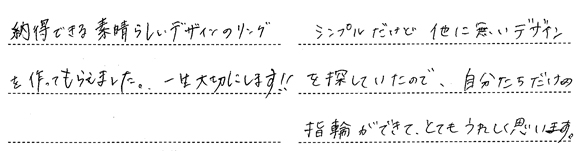 納得できる素晴らしいデザインのリング
を作ってもらえました。一生大切にします!!
シンプルだけど他に無いデザイン
を探していたので、自分たちだけの
指輪ができて、とてもうれしく思います。